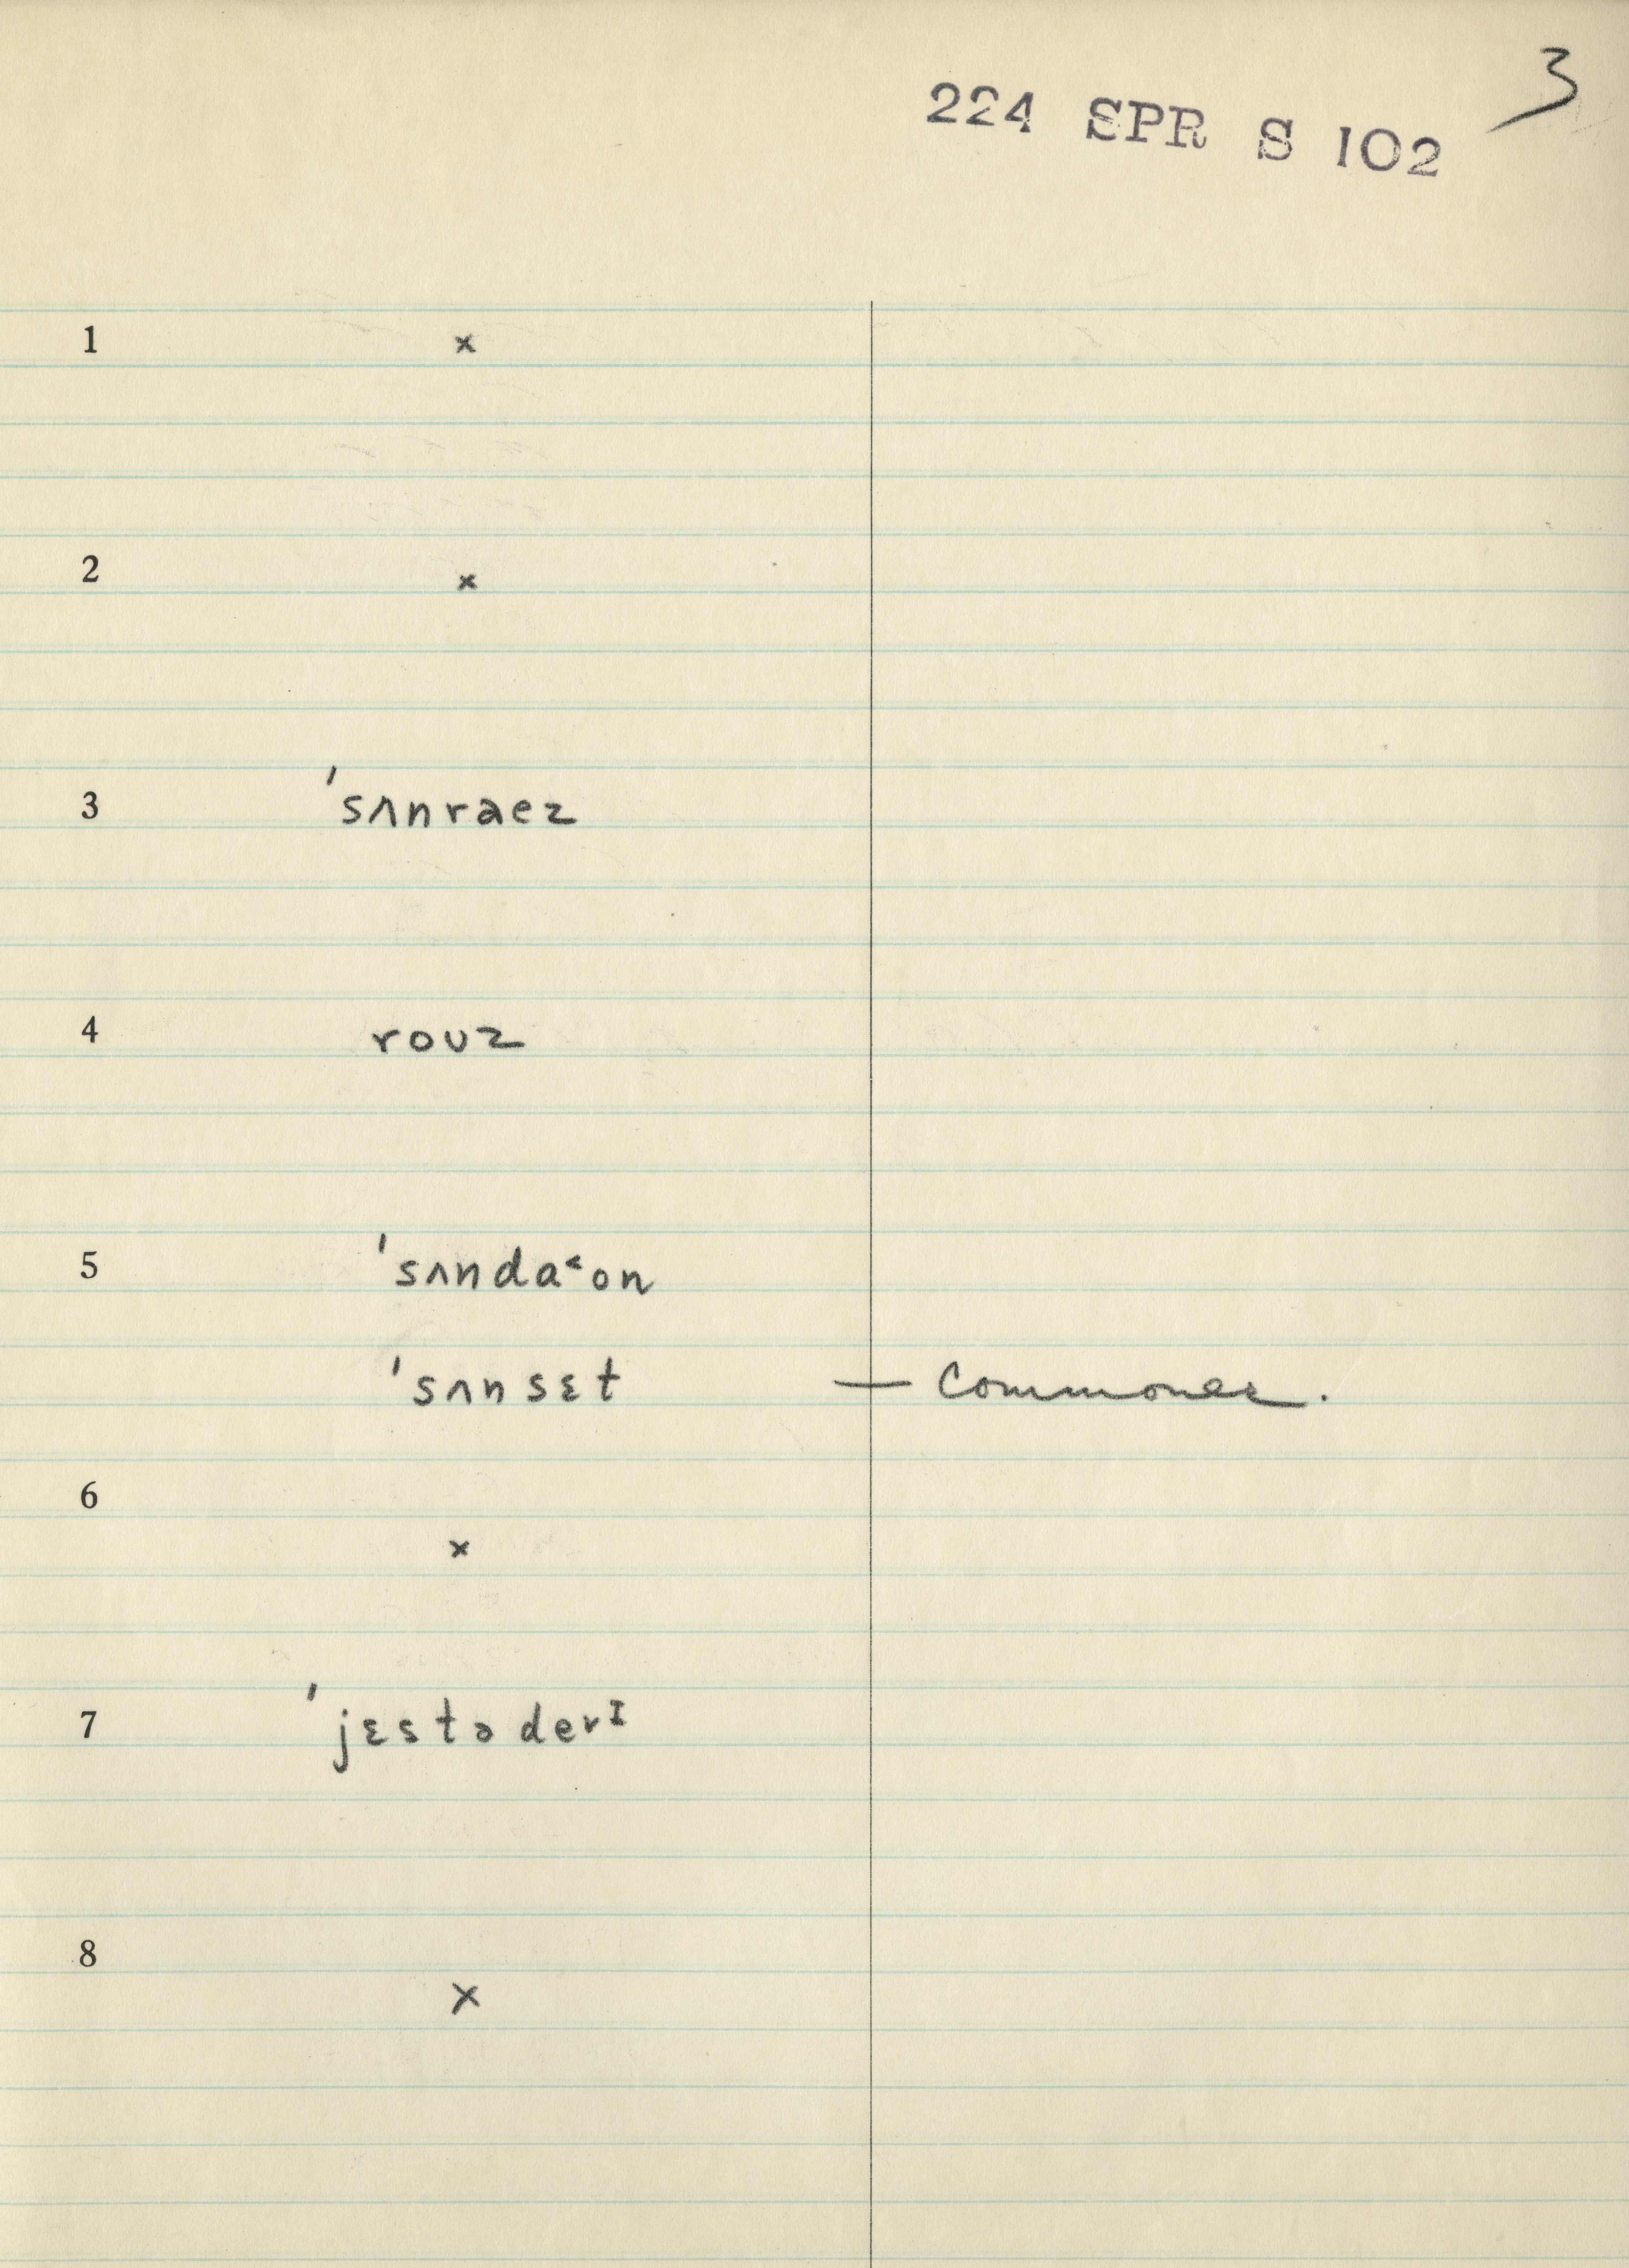 3
224 SPR S 102
1 ×
2 ×
3 ˈsʌnraez
4 rouz
5 ˈsʌndaᵋon
ˈsʌnsɛt — Commoner.
6 ×
7 ˈjɛstədevᶦ
8 ×